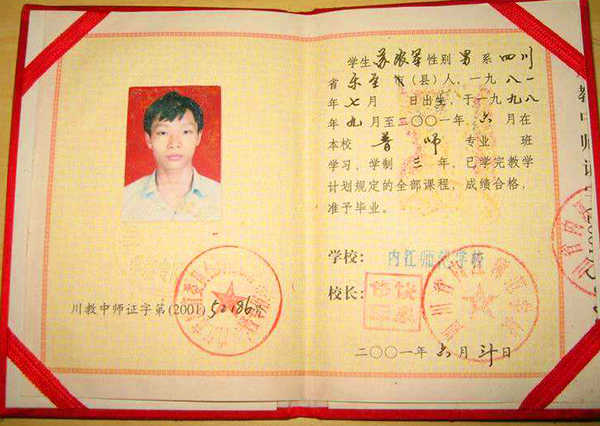 川教中师证字第(2001)52186号
学生苏 军性别男系四川
省乐至市(县)人,一九八一
年七月 日出生,于一九九八
年九月至二〇〇一年六月在
本校普师专业 班
学习,学制三年,已学完教学
计划规定的全部课程,成绩合格,
准予毕业。
学校:内江师范学校
校长:
二〇〇一年六月 日